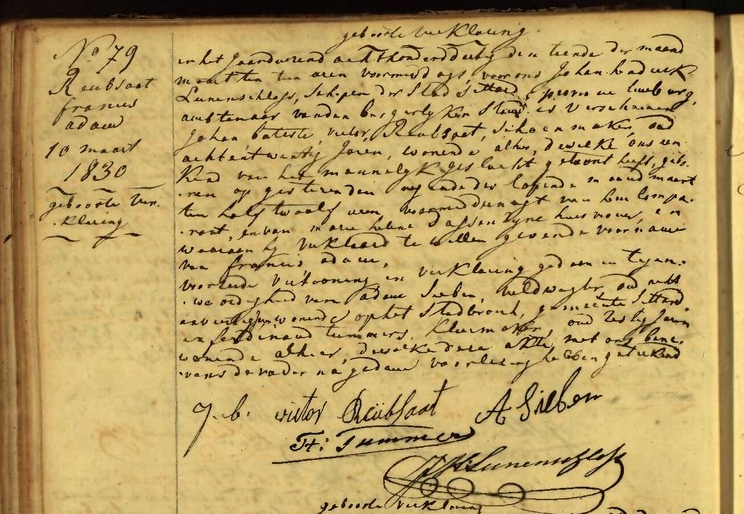 geboorte verklaring
N° 79
Reubsaat
francis
adam
10 maart
1830
geboorte ver-
klaring
in het Jaar duizend acht honderd dertig den tiende der maand
maart ten tien uren voormiddags voor ons Johan hendrik
Lunenschloss, Schepen der Stad Sittard, provincie limburg,
ambtenaar van den burgerlyken Stand is Verschenen
Johan batiste victor Reubsaat Schoenmaker, oud
acht en twintig Jaren, wonende alhier, dewelke ons een
Kind van het mannelyk geslacht getoont heeft, geb-
oren op gisteren den negende der lopende maand maart
ten half twaalf uren voormiddernagt van hem Compa-
rant, en van marie helene Dassen zyne huisvrouw, en
waaraan hy verklaard te willen geven de voornaam
van francis adam,
voorzeide Vertooning en verklaring gedaan in tegen-
woordigheid van adam Sieben, veldwagter, oud acht
en veertig Jaren wonende op het Stadbroek, gemeente Sittard
en ferdinand tummers, kleermaker, oud zestig Jaren
wonende alhier, dewelke deze akte, met ons bene-
vens de vader na gedane voorlezing hebben getekend
J. b. victor Reübsaat A Sieben
F: Tummer
J H Lunenschloss
geboorte verklaring